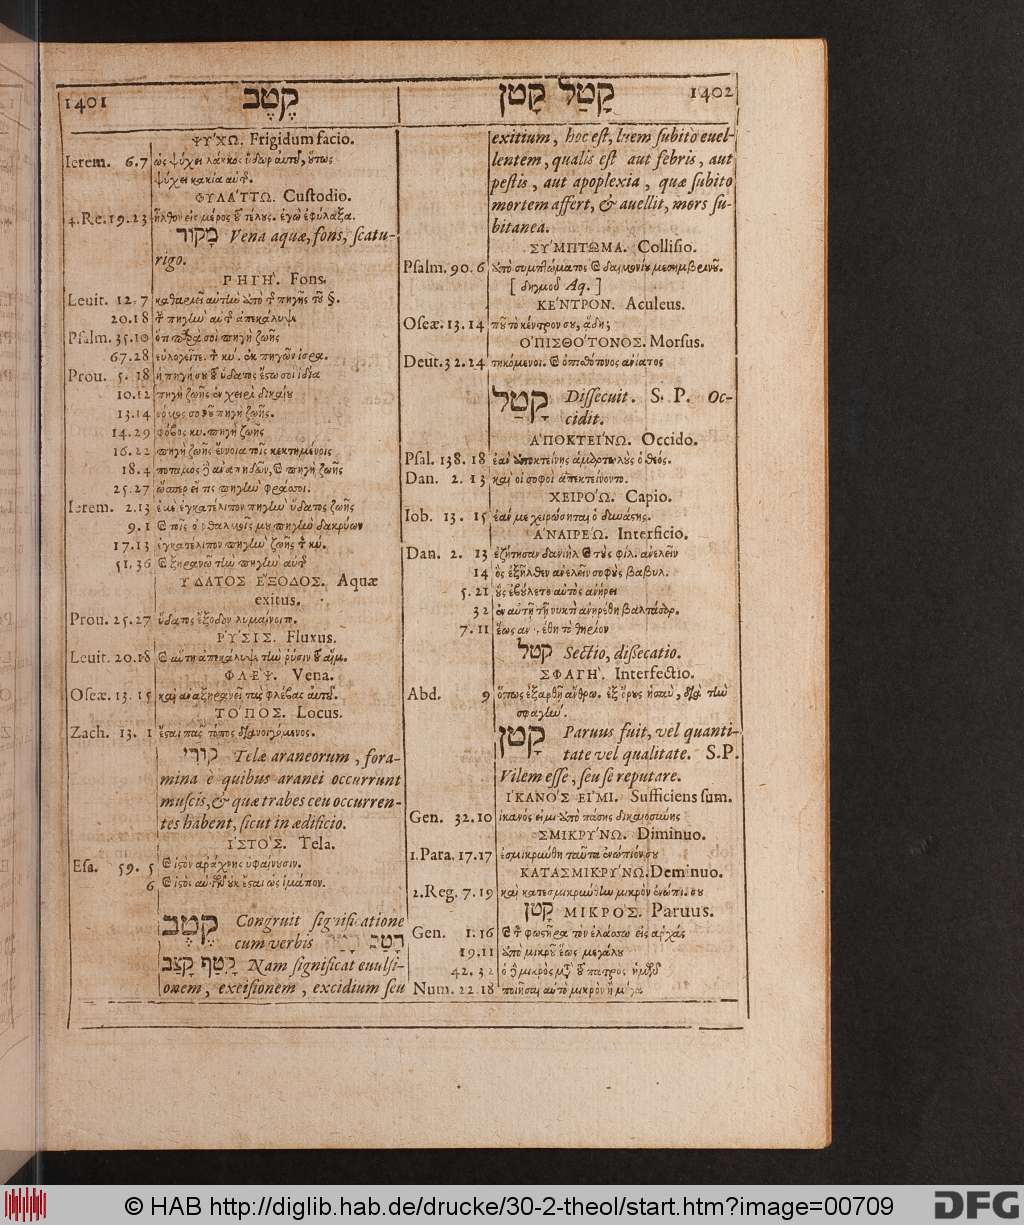 1401 קֶטֶב
קָטַל קָטַן 1402
ΨΥΧΩ. Frigidum facio.
Ierem. 6.7 ὡς ψύχει λάκκος ὕδωρ αὐτοῦ, οὕτως
ψύχει κακία αὐτῆς.
ΦΥΛΑΤΤΩ. Custodio.
4.Re.19.23 ἦλθον εἰς μέρος τοῦ τέλους. ἐγὼ ἐφύλαξα.
מָקוֹר Vena aquæ, fons, scatu-
rigo.
ΡΗΓΗ. Fons.
Leuit. 12.7 καθαριεῖ αὐτὴν ἀπὸ τῆς πηγῆς τοῦ
20.18 τὴν πηγὴν αὐτῆς ἀπεκάλυψε
Psalm. 35.10 ὅτι παρὰ σοὶ πηγὴ ζωῆς
67.28 εὐλογεῖτε. τὸν κύ. ἐκ πηγῶν ἰσρα.
Prou. 5.18 ἡ πηγή σου τοῦ ὕδατος ἔστω σοι ἰδία
10.12 πηγὴ ζωῆς ἐν χειρὶ δικαίου
13.14 νόμος σοφοῦ πηγὴ ζωῆς.
14.29 φόβος κυ. πηγὴ ζωῆς
16.22 πηγὴ ζωῆς ἔννοια τοῖς κεκτημένοις
18.4 ποταμὸς δὲ ἀναπηδῶν, καὶ πηγὴ ζωῆς
25.27 ὥσπερ εἴ τις πηγὴν φράσσοι.
Ierem. 2.13 ἐμὲ ἐγκατέλιπον πηγὴν ὕδατος ζωῆς
9.1 καὶ τοῖς ὀφθαλμοῖς μου πηγὴν δακρύων
17.13 ἐγκατέλιπον πηγὴν ζωῆς τὸν κύ.
51.36 καὶ ξηρανῶ τὴν πηγὴν αὐτῆς
ΥΔΑΤΟΣ ΕΞΟΔΟΣ. Aquæ
exitus.
Prou. 25.27 ὕδατος ἔξοδον λυμαίνοιτο.
ΡΥΣΙΣ. Fluxus.
Leuit. 20.18 καὶ αὕτη ἀπεκάλυψε τὴν ῥύσιν τοῦ αἵμ.
ΦΛΕΨ. Vena.
Oseæ. 13.15 καὶ ἀναξηρανεῖ τὰς φλέβας αὐτοῦ.
ΤΟΠΟΣ. Locus.
Zach. 13.1 ἔσται πᾶς τόπος διανοιγόμενος.
קוּרֵי Telæ araneorum, fora-
mina è quibus aranei occurrunt
muscis, & quæ trabes ceu occurren-
tes habent, sicut in ædificio.
ΙΣΤΟΣ. Tela.
Esa. 59.5 καὶ ἱστὸν ἀράχνης ὑφαίνουσιν.
6 καὶ ἱστὸς αὐτῶν οὐκ ἔσται ὡς ἱμάτιον.
קֶטֶב Congruit significatione
cum verbis
קָטַף קָצַב Nam significat euulsi-
onem, excisionem, excidium seu
exitium, hoc est, luem subito euel-
lentem, qualis est aut febris, aut
pestis, aut apoplexia, quæ subito
mortem affert, & auellit, mors su-
bitanea.
ΣΥΜΠΤΩΜΑ. Collisio.
Psalm. 90.6 ἀπὸ συμπτώματος καὶ δαιμονίου μεσημβρινοῦ.
[ δηγμοῦ Aq. ]
ΚΕΝΤΡΟΝ. Aculeus.
Oseæ. 13.14 ποῦ τὸ κέντρον σου, ἅδη;
ΟΠΙΣΘΟΤΟΝΟΣ. Morsus.
Deut. 32.24 τηκόμενοι. καὶ ὀπισθότονος ἀνίατος
קָטַל Dissecuit. S. P. Oc-
cidit.
ΑΠΟΚΤΕΙΝΩ. Occido.
Psal. 138.18 ἐὰν ἀποκτείνῃς ἁμαρτωλοὺς ὁ θεός.
Dan. 2.13 καὶ οἱ σοφοὶ ἀπεκτείνοντο.
ΧΕΙΡΟΩ. Capio.
Iob. 13.15 ἐάν με χειρώσηται ὁ δυνάστης.
ΑΝΑΙΡΕΩ. Interficio.
Dan. 2. 13 ἐζήτησαν δανιὴλ καὶ τοὺς φίλ. ἀνελεῖν
14 ὃς ἐξῆλθεν ἀνελεῖν σοφοὺς βαβυλ.
5.21 οὓς ἐβούλετο αὐτὸς ἀνῄρει
32 ἐν αὐτῇ τῇ νυκτὶ ἀνῃρέθη βαλτάσαρ.
7.11 ἕως ἀνῃρέθη τὸ θηρίον
קֶטֶל Sectio, dissecatio.
ΣΦΑΓΗ. Interfectio.
Abd. 9 ὅπως ἐξαρθῇ ἄνθρω. ἐξ ὄρους ἡσαῦ, διὰ τὴν
σφαγήν.
קָטַן Paruus fuit, vel quanti-
tate vel qualitate. S.P.
Vilem esse, seu se reputare.
ΙΚΑΝΟΣ ΕΙΜΙ. Sufficiens sum.
Gen. 32.10 ἱκανός εἰμι ἀπὸ πάσης δικαιοσύνης
ΣΜΙΚΡΥΝΩ. Diminuo.
1.Para. 17.17 ἐσμικρύνθη ταῦτα ἐνώπιόν σου
ΚΑΤΑΣΜΙΚΡΥΝΩ. Deminuo.
2.Reg. 7.19 καὶ κατεσμικρύνθην μικρὸν ἐνώπι. σου
קָטָן ΜΙΚΡΟΣ. Paruus.
Gen. 1.16 καὶ τὸν φωστῆρα τὸν ἐλάσσω εἰς ἀρχάς
19.11 ἀπὸ μικροῦ ἕως μεγάλου
42.32 ὁ δὲ μικρὸς μετὰ τοῦ πατρὸς ἡμῶν
Num. 22.18 ποιῆσαι αὐτὸ μικρὸν ἢ μέγα
© HAB http://diglib.hab.de/drucke/30-2-theol/start.htm?image=00709
DFG